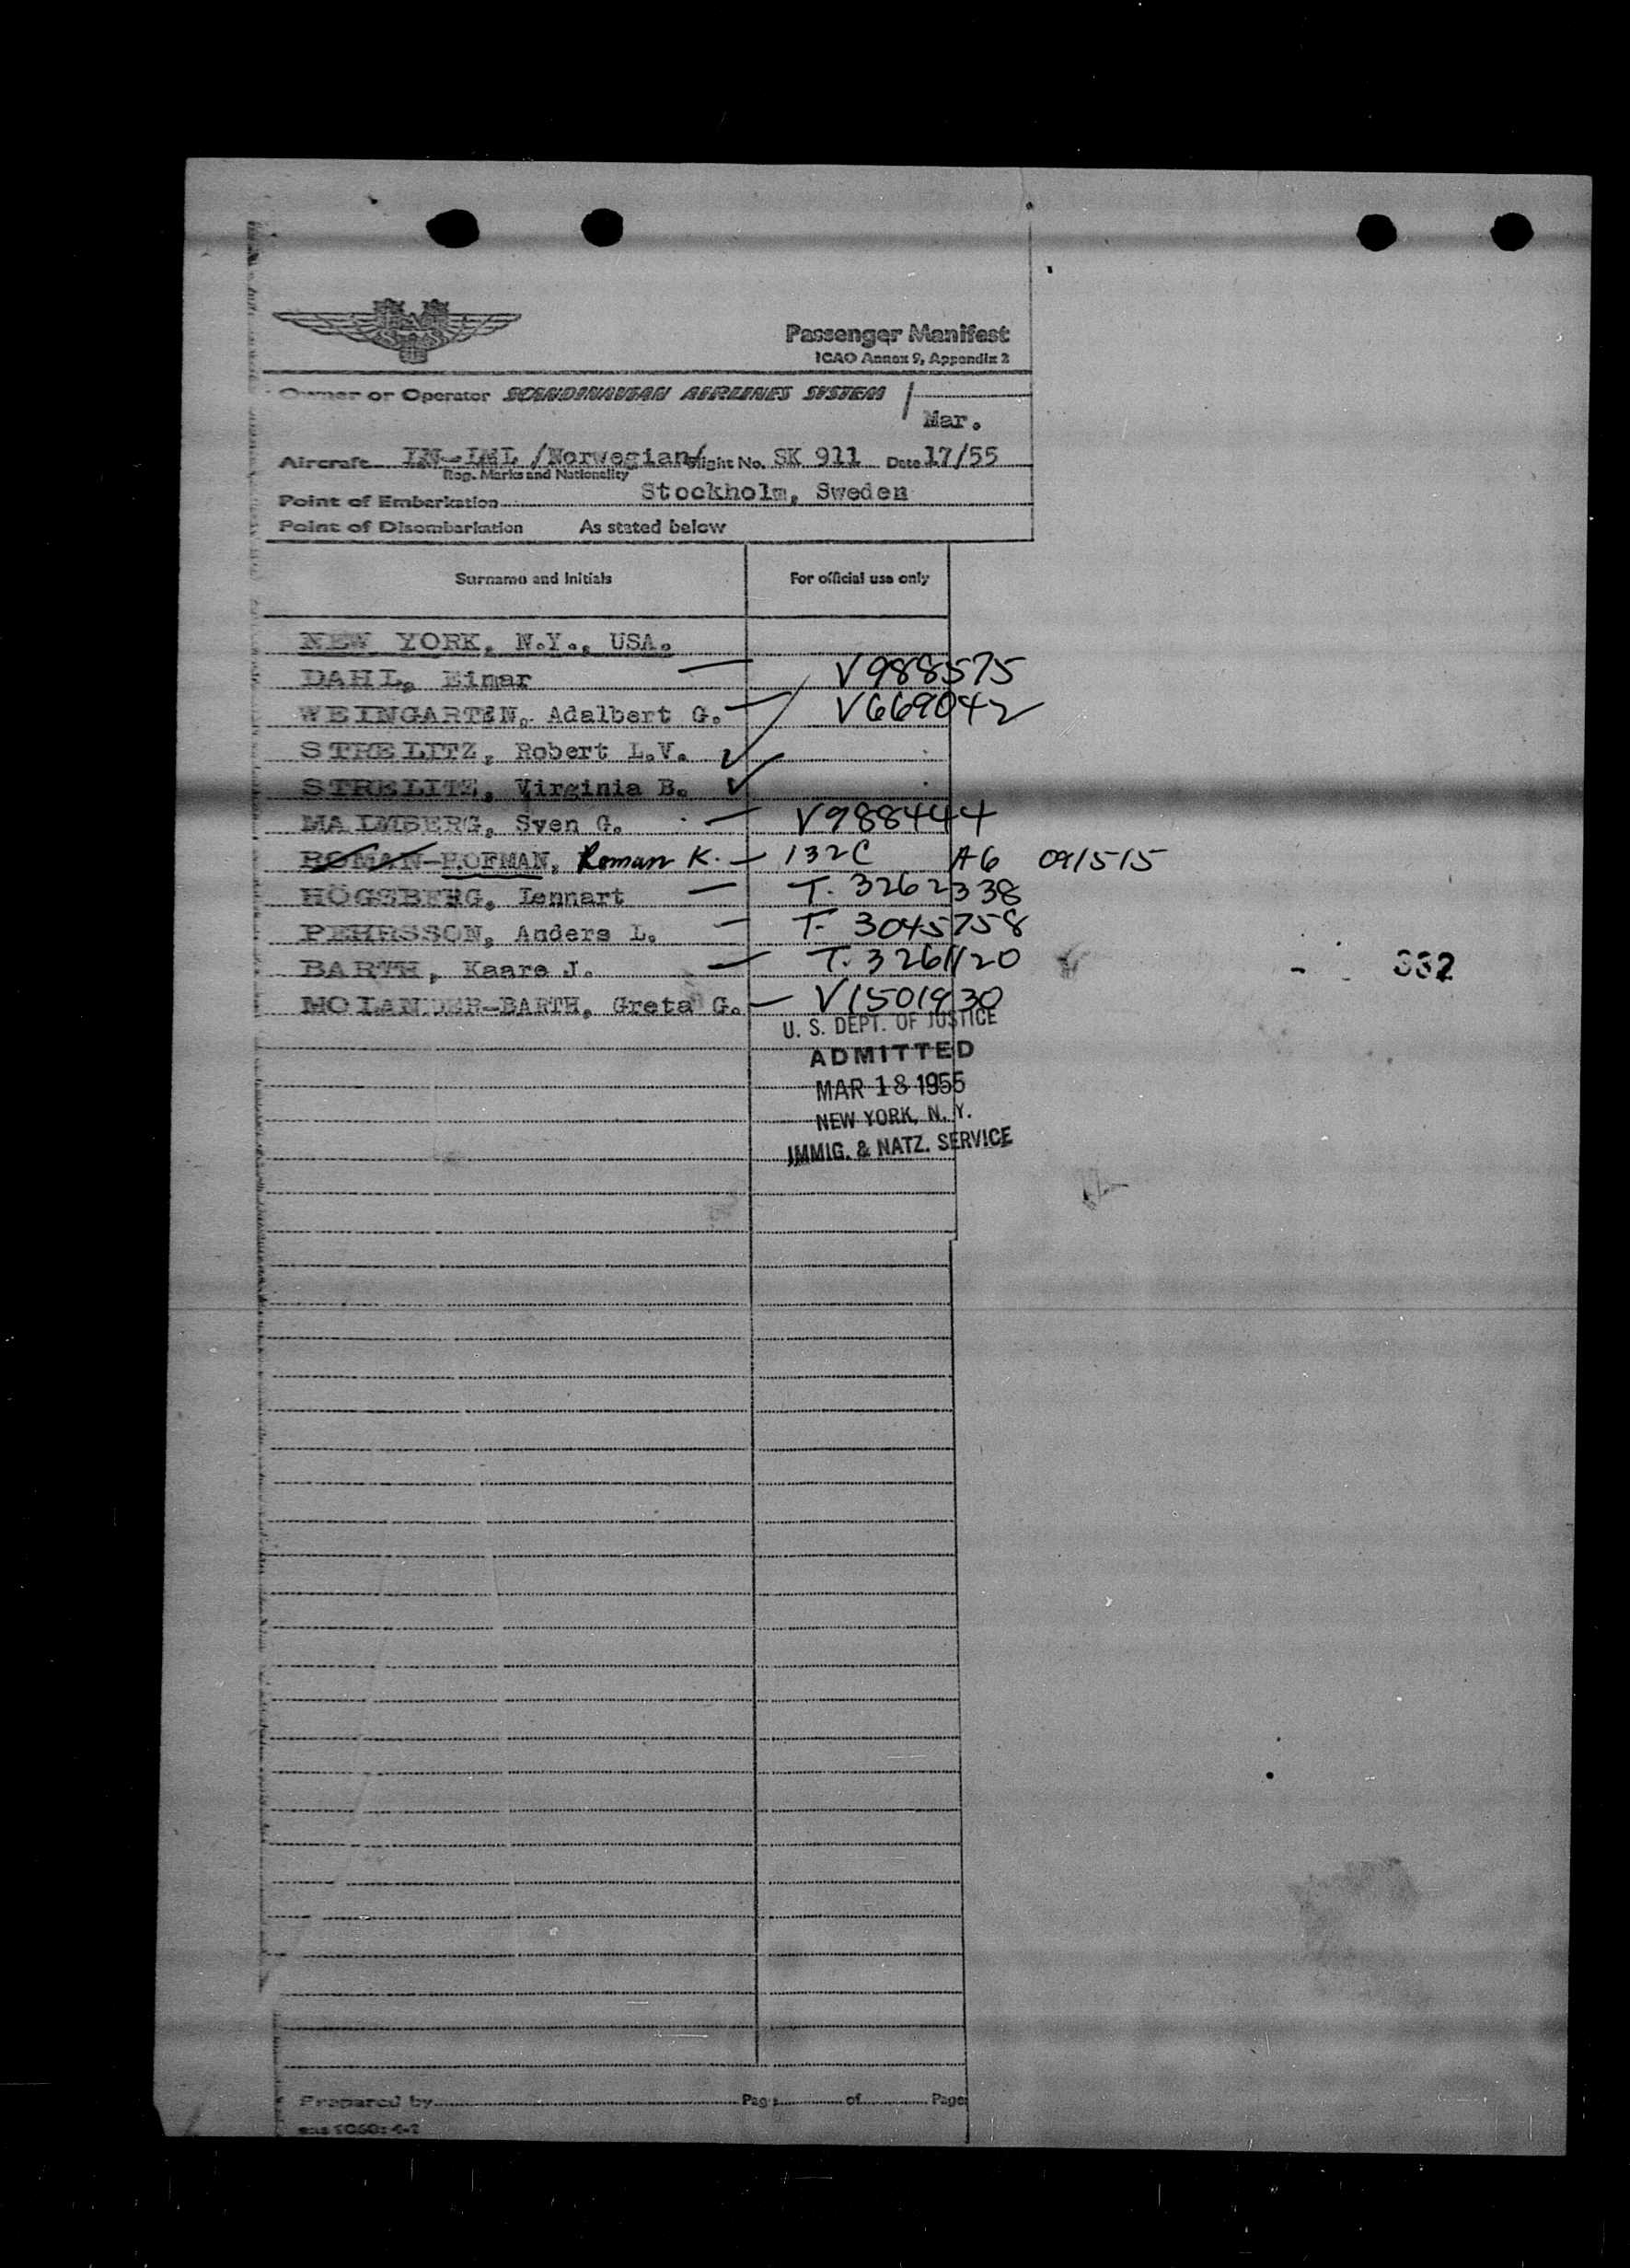 Passenger Manifest
ICAO Annex 9, Appendix 2
Owner or Operator SCANDINAVIAN AIRLINES SYSTEM
Mar.
Aircraft LN-LML /Norwegian/ Flight No. SK 911 Date 17/55
Reg. Marks and Nationality
Point of Embarkation Stockholm, Sweden
Point of Disembarkation As stated below
Surname and Initials For official use only
NEW YORK, N.Y., USA.
DAHL, Einar — V988575
WEINGARTEN, Adalbert G. — V669042
STRELITZ, Robert L.V. ✓
STRELITZ, Virginia B. ✓
MALMBERG, Sven G. — V988444
ROMAN-HOFMAN, Roman K. — 132C A6 091515
HÖGSBERG, Lennart — T. 3262338
PEHRSSON, Anders L. — T- 3045758
BARTH, Kaare J. — T. 3261120
MOLANDER-BARTH, Greta G. — V1501930
332
U. S. DEPT. OF JUSTICE
ADMITTED
MAR 18 1955
NEW YORK, N. Y.
IMMIG. & NATZ. SERVICE
Prepared by Page of Page